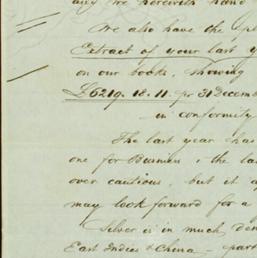 any we herewith hand
We also have the
Extract of your last y
on our books, showing
£6219. 18. 11. pr 31 Decemb
in conformity
The last year has
one for Business & the la
over cautious, but it a
may look forward for a
Silver is in much dem
East Indies & China — part